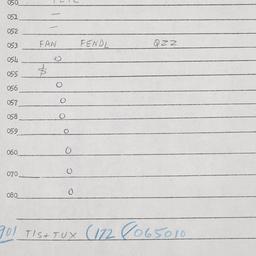 050
051 —
052 —
053 FAN FENDL QZZ
054 0
055
056 0
057 0
058 0
059 0
060 0
070 0
080 0
901 TIS+TUX (172 065010